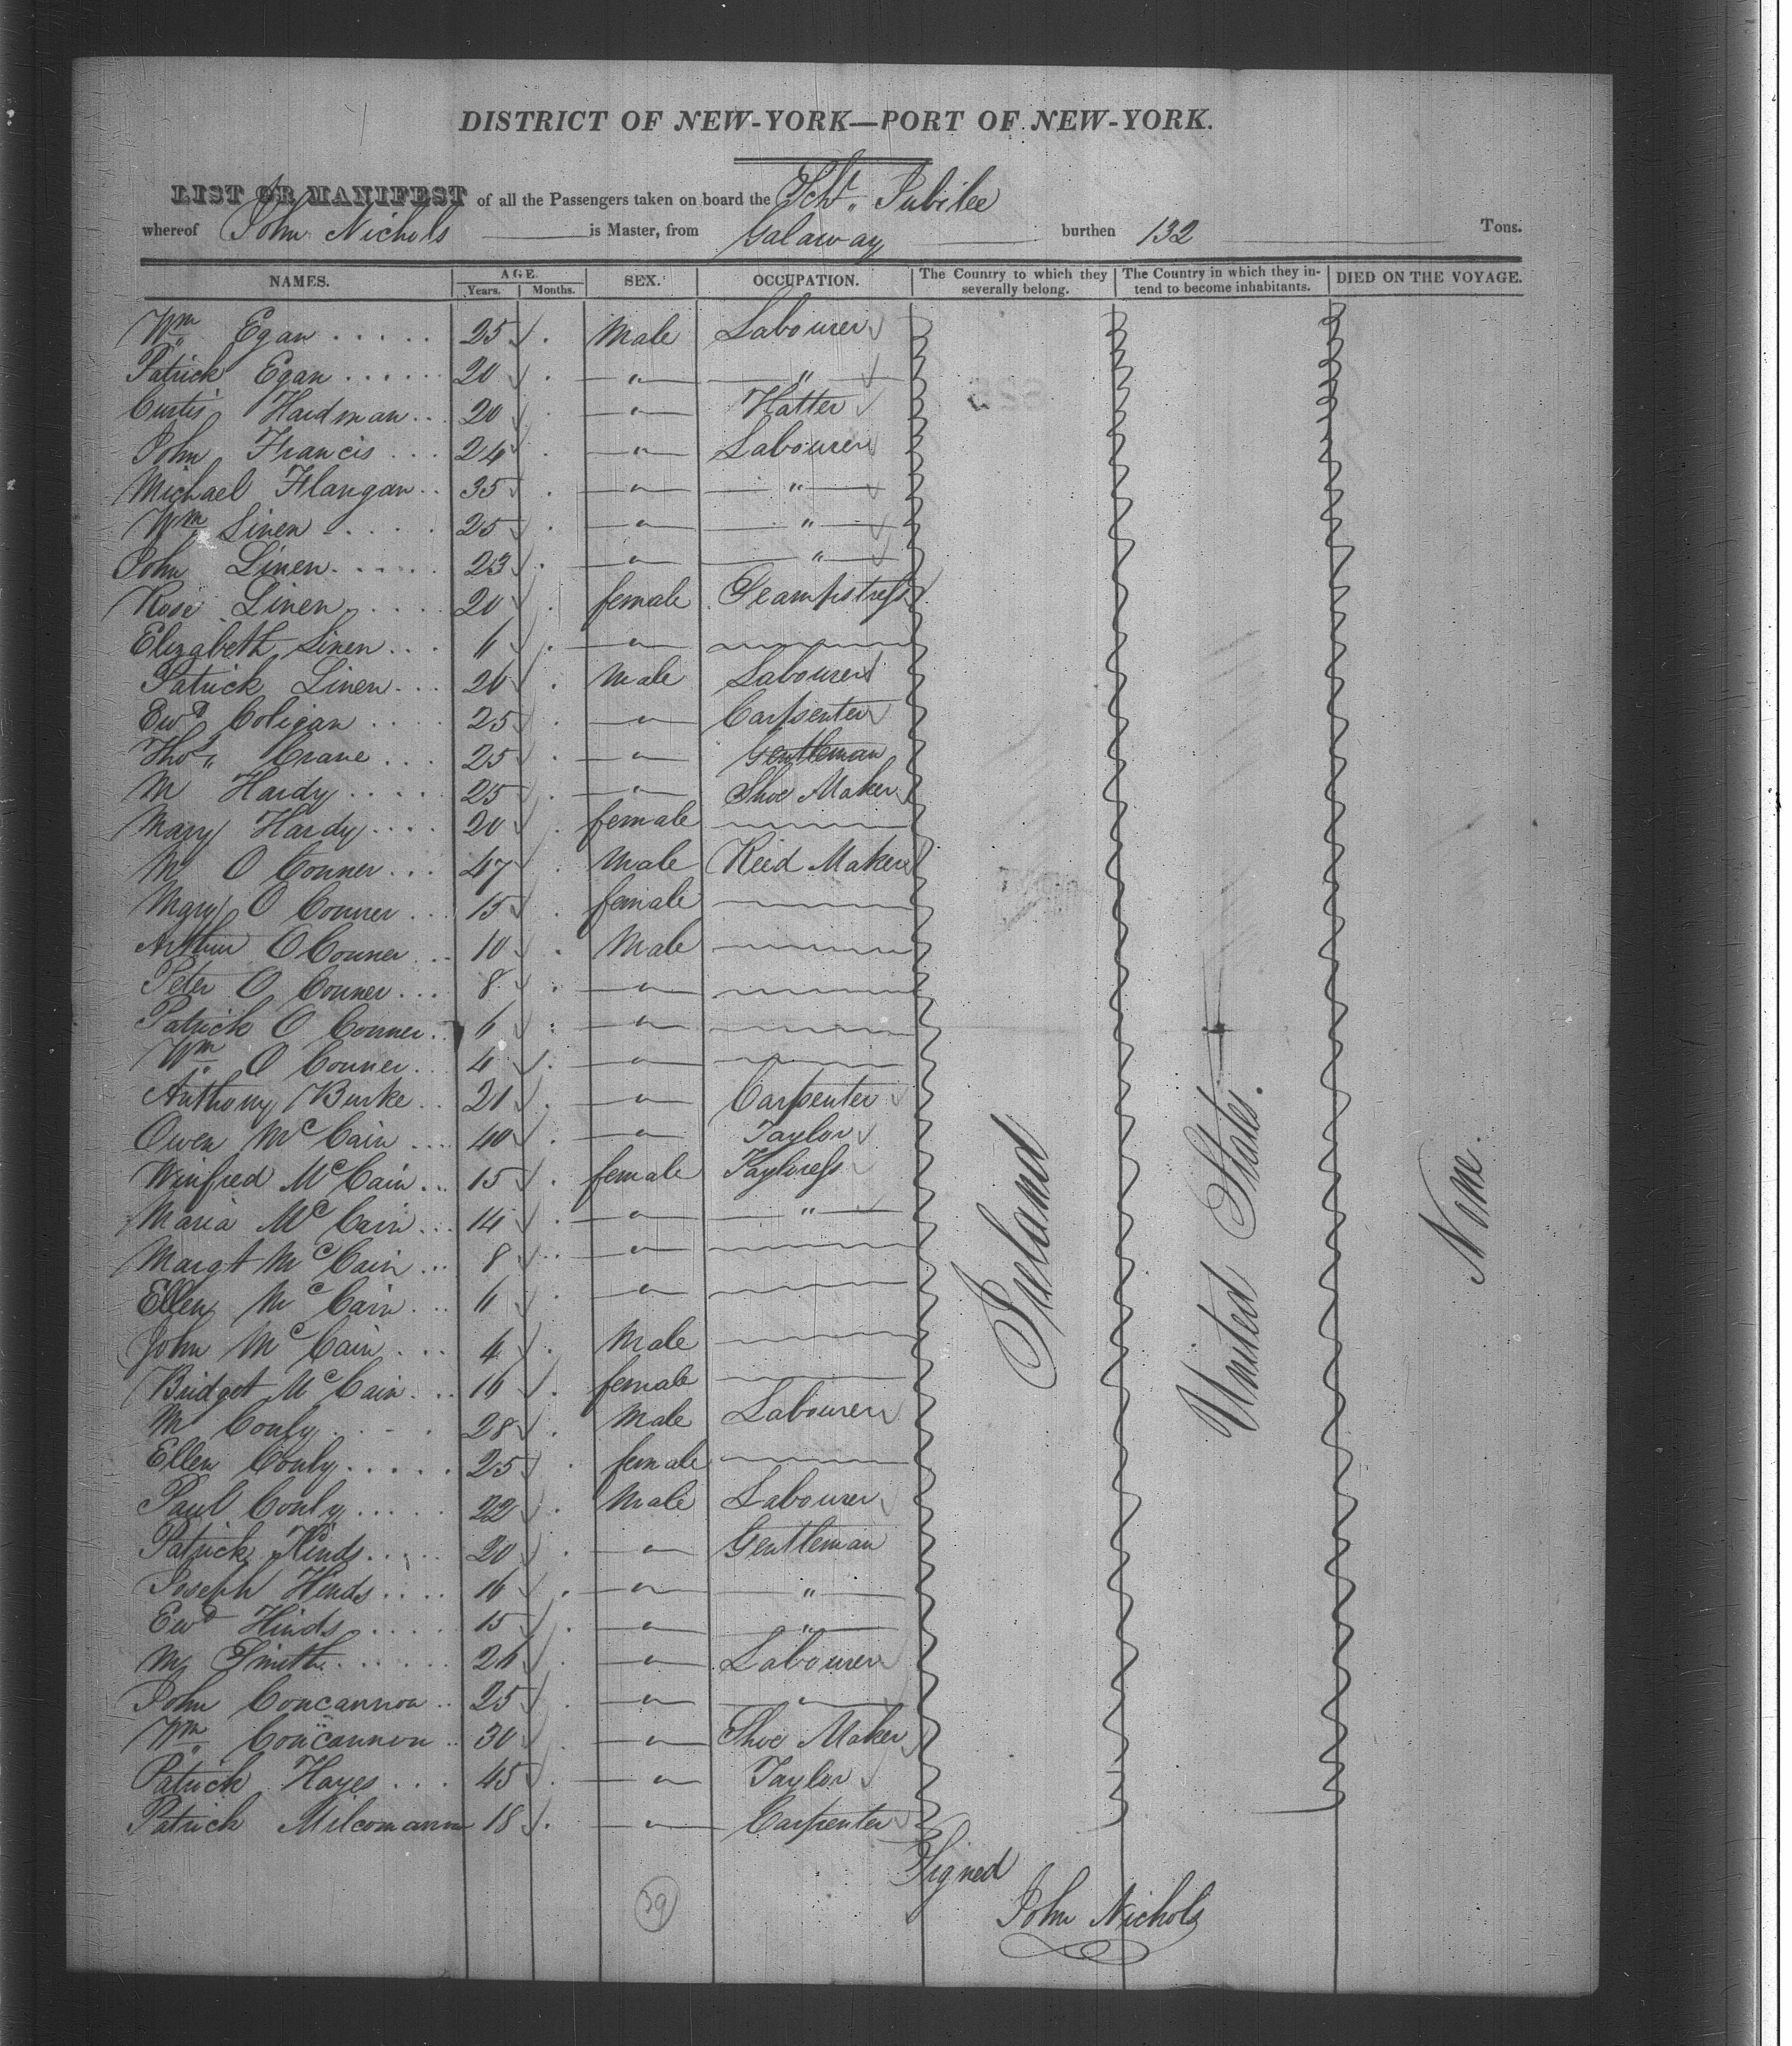 DISTRICT OF NEW-YORK—PORT OF NEW-YORK.
LIST OR MANIFEST of all the Passengers taken on board the Schr. Jubilee
whereof John Nichols is Master, from Galaway burthen 132 Tons.
NAMES. AGE. Years. Months. SEX. OCCUPATION. The Country to which they severally belong. The Country in which they intend to become inhabitants. DIED ON THE VOYAGE.
Wm Egan 25 Male Labourer
Patrick Egan 20 " "
Curtis Hardman 20 " Hatter
John Francis 24 " Labourer
Michael Flangan 35 " "
Wm Linen 25 " "
John Linen 23 " "
Rose Linen 20 female Seampstress
Elizabeth Linen 6 "
Patrick Linen 26 Male Labourer
Ewd Coligan 25 " Carpenter
Thos Crane 25 " Gentleman
M Hardy 25 " Shoe Maker
Mary Hardy 20 female
M O Conner 47 Male Reed Maker
Mary O Conner 15 female
Arthur O Conner 10 Male
Peter O Conner 8 "
Patrick O Conner 6 "
Wm O Conner 4 "
Anthony Burke 21 " Carpenter
Owen McCain 40 " Taylor
Winfred McCain 15 female Tayloress
Maria McCain 14 " "
Margt McCain 8 "
Ellen McCain 6 "
John McCain 4 Male
Bridget McCain 16 female
M Conly 28 Male Labourer
Ellen Conly 25 female
Paul Conly 22 Male Labourer
Patrick Hinds 20 " Gentleman
Joseph Hinds 16 " "
Ewd Hinds 15 " "
M Smith 26 " Labourer
John Concannon 25 " "
Wm Concannon 30 " Shoe Maker
Patrick Hayes 45 " Taylor
Patrick Milcomann 18 " Carpenter
Ireland
United States.
None.
Signed
John Nichols
39